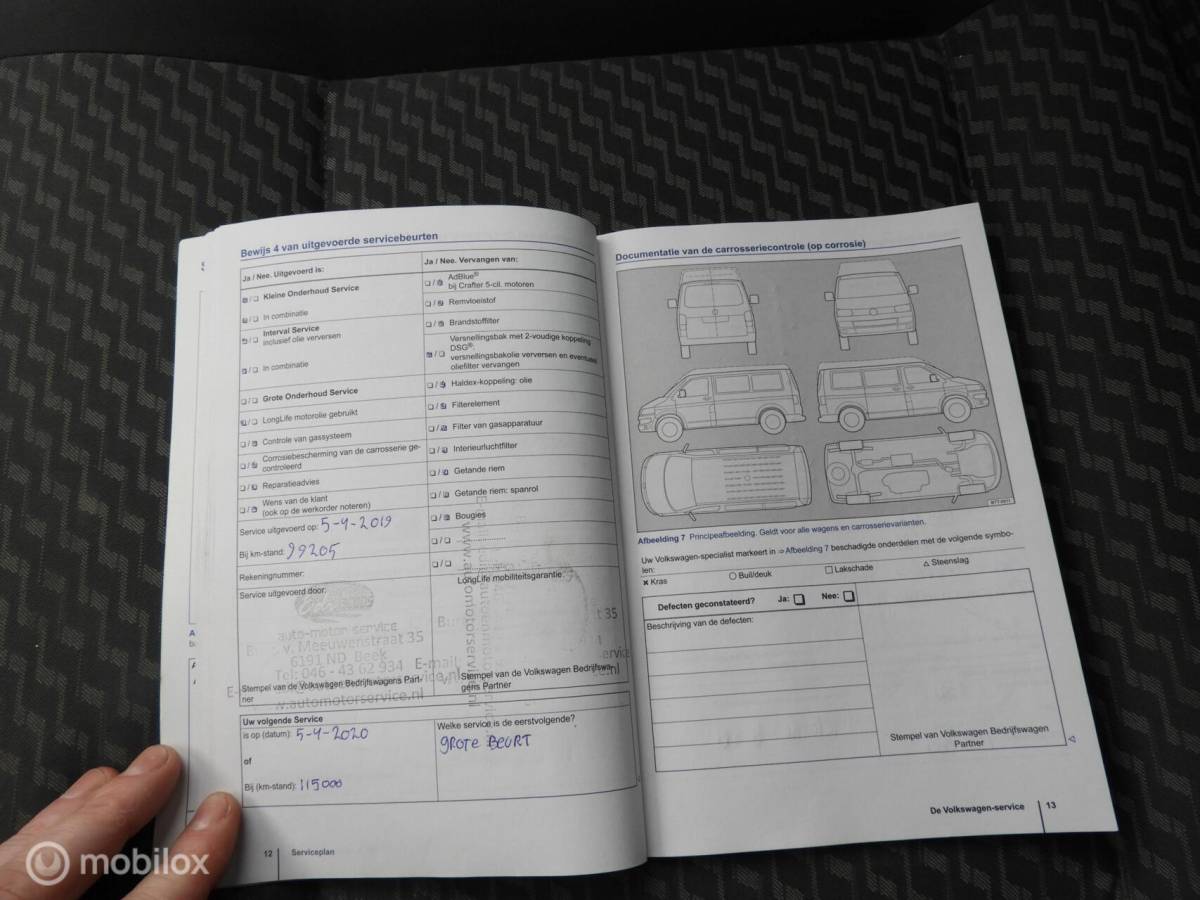 Bewijs 4 van uitgevoerde servicebeurten
Ja / Nee. Uitgevoerd is:
Kleine Onderhoud Service
In combinatie
Interval Service
inclusief olie verversen
In combinatie
Grote Onderhoud Service
LongLife motorolie gebruikt
Controle van gassysteem
Corrosiebescherming van de carrosserie ge-
controleerd
Reparatieadvies
Wens van de klant
(ook op de werkorder noteren)
Service uitgevoerd op: 5-4-2019
Bij km-stand: 99205
Rekeningnummer:
Service uitgevoerd door:
auto-motor service
v. Meeuwenstraat 35
6191 ND Beek
Tel: 046 - 43 62 934
Stempel van de Volkswagen Bedrijfswagens Part-
ner
Ja / Nee. Vervangen van:
AdBlue®
bij Crafter 5-cil. motoren
Remvloeistof
Brandstoffilter
Versnellingsbak met 2-voudige koppeling
DSG®:
versnellingsbakolie verversen en eventueel
oliefilter vervangen
Haldex-koppeling: olie
Filterelement
Filter van gasapparatuur
Interieurluchtfilter
Getande riem
Getande riem: spanrol
Bougies
LongLife mobiliteitsgarantie:
E-mail
www.automotorservice.nl
Stempel van de Volkswagen Bedrijfswa-
gens Partner
Uw volgende Service
is op (datum): 5-4-2020
of
Bij (km-stand): 115000
Welke service is de eerstvolgende?
GROTE BEURT
12 Serviceplan
Documentatie van de carrosseriecontrole (op corrosie)
Afbeelding 7 Principeafbeelding. Geldt voor alle wagens en carrosserievarianten.
Uw Volkswagen-specialist markeert in ⇒ Afbeelding 7 beschadigde onderdelen met de volgende symbo-
len:
× Kras ○ Buil/deuk □ Lakschade △ Steenslag
Defecten geconstateerd? Ja: Nee:
Beschrijving van de defecten:
Stempel van Volkswagen Bedrijfswagen
Partner
De Volkswagen-service 13
mobilox